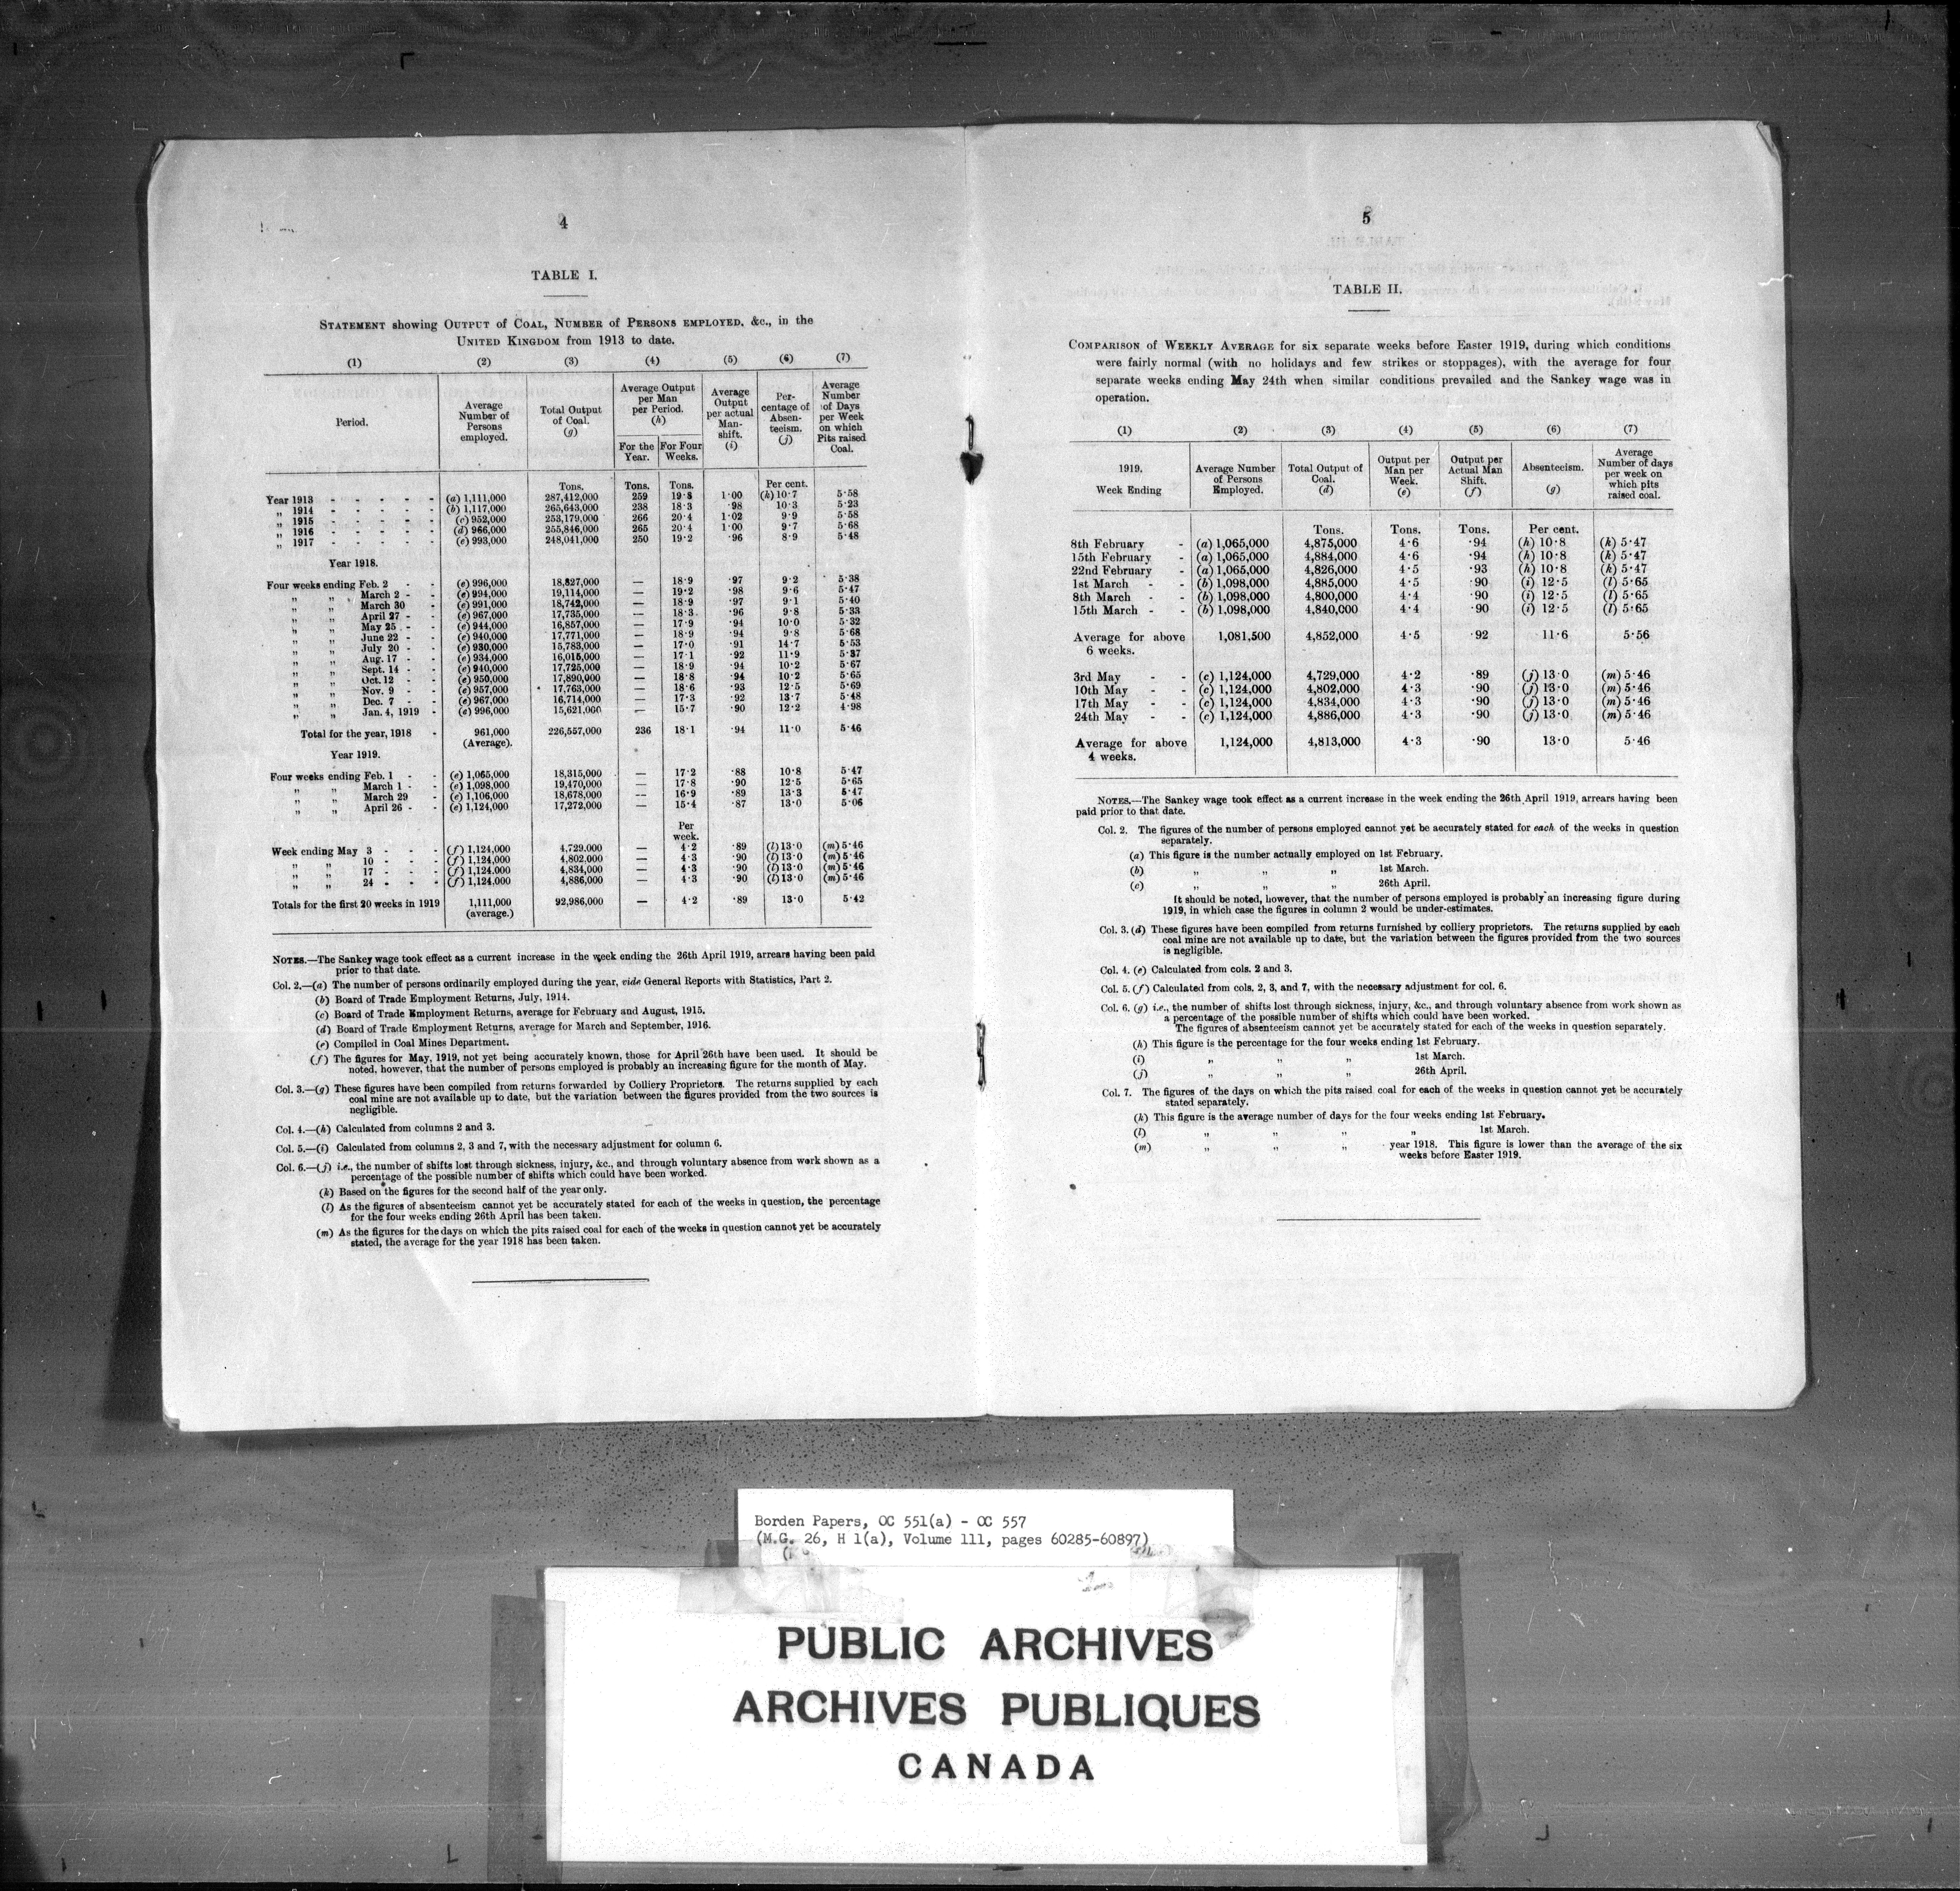 4
TABLE I.
STATEMENT showing OUTPUT of COAL, NUMBER of PERSONS EMPLOYED, &c., in the
UNITED KINGDOM from 1913 to date.
(1) (2) (3) (4) (5) (6) (7)
Period. Average Number of Persons employed. Total Output of Coal. (g) Average Output per Man per Period. (h) For the Year. For Four Weeks. Average Output per actual Man-shift. (i) Per-centage of Absen-teeism. (j) Average Number of Days per Week on which Pits raised Coal.
Tons. Tons. Tons. Per cent.
Year 1913 - - - - - (a) 1,111,000 287,412,000 259 19·8 1·00 (k) 10·7 5·58
„ 1914 - - - - - (b) 1,117,000 265,643,000 238 18·3 ·98 10·3 5·23
„ 1915 - - - - - (c) 952,000 253,179,000 266 20·4 1·02 9·9 5·58
„ 1916 - - - - - (d) 966,000 255,846,000 265 20·4 1·00 9·7 5·68
„ 1917 - - - - - (e) 993,000 248,041,000 250 19·2 ·96 8·9 5·48
Year 1918.
Four weeks ending Feb. 2 - - (e) 996,000 18,827,000 — 18·9 ·97 9·2 5·38
„ „ March 2 - - (e) 994,000 19,114,000 — 19·2 ·98 9·6 5·47
„ „ March 30 - (e) 991,000 18,742,000 — 18·9 ·97 9·1 5·40
„ „ April 27 - - (e) 967,000 17,735,000 — 18·3 ·96 9·8 5·33
„ „ May 25 - - (e) 944,000 16,857,000 — 17·9 ·94 10·0 5·32
„ „ June 22 - - (e) 940,000 17,771,000 — 18·9 ·94 9·8 5·68
„ „ July 20 - - (e) 930,000 15,783,000 — 17·0 ·91 14·7 5·53
„ „ Aug. 17 - - (e) 934,000 16,015,000 — 17·1 ·92 11·9 5·37
„ „ Sept. 14 - - (e) 940,000 17,725,000 — 18·9 ·94 10·2 5·67
„ „ Oct. 12 - - (e) 950,000 17,890,000 — 18·8 ·94 10·2 5·65
„ „ Nov. 9 - - (e) 957,000 17,763,000 — 18·6 ·93 12·5 5·69
„ „ Dec. 7 - - (e) 967,000 16,714,000 — 17·3 ·92 13·7 5·48
„ „ Jan. 4, 1919 - (e) 996,000 15,621,000 — 15·7 ·90 12·2 4·98
Total for the year, 1918 - 961,000 226,557,000 236 18·1 ·94 11·0 5·46
(Average).
Year 1919.
Four weeks ending Feb. 1 - - (e) 1,065,000 18,315,000 — 17·2 ·88 10·8 5·47
„ „ March 1 - - (e) 1,098,000 19,470,000 — 17·8 ·90 12·5 5·65
„ „ March 29 - (e) 1,106,000 18,678,000 — 16·9 ·89 13·3 5·47
„ „ April 26 - - (e) 1,124,000 17,272,000 — 15·4 ·87 13·0 5·06
Per
week.
Week ending May 3 - - - (f) 1,124,000 4,729,000 — 4·2 ·89 (l) 13·0 (m) 5·46
„ „ 10 - - - (f) 1,124,000 4,802,000 — 4·3 ·90 (l) 13·0 (m) 5·46
„ „ 17 - - - (f) 1,124,000 4,834,000 — 4·3 ·90 (l) 13·0 (m) 5·46
„ „ 24 - - - (f) 1,124,000 4,886,000 — 4·3 ·90 (l) 13·0 (m) 5·46
Totals for the first 20 weeks in 1919 1,111,000 92,986,000 — 4·2 ·89 13·0 5·42
(average.)
NOTES.—The Sankey wage took effect as a current increase in the week ending the 26th April 1919, arrears having been paid
prior to that date.
Col. 2.—(a) The number of persons ordinarily employed during the year, vide General Reports with Statistics, Part 2.
(b) Board of Trade Employment Returns, July, 1914.
(c) Board of Trade Employment Returns, average for February and August, 1915.
(d) Board of Trade Employment Returns, average for March and September, 1916.
(e) Compiled in Coal Mines Department.
(f) The figures for May, 1919, not yet being accurately known, those for April 26th have been used. It should be
noted, however, that the number of persons employed is probably an increasing figure for the month of May.
Col. 3.—(g) These figures have been compiled from returns forwarded by Colliery Proprietors. The returns supplied by each
coal mine are not available up to date, but the variation between the figures provided from the two sources is
negligible.
Col. 4.—(h) Calculated from columns 2 and 3.
Col. 5.—(i) Calculated from columns 2, 3 and 7, with the necessary adjustment for column 6.
Col. 6.—(j) i.e., the number of shifts lost through sickness, injury, &c., and through voluntary absence from work shown as a
percentage of the possible number of shifts which could have been worked.
(k) Based on the figures for the second half of the year only.
(l) As the figures of absenteeism cannot yet be accurately stated for each of the weeks in question, the percentage
for the four weeks ending 26th April has been taken.
(m) As the figures for the days on which the pits raised coal for each of the weeks in question cannot yet be accurately
stated, the average for the year 1918 has been taken.
5
TABLE II.
COMPARISON of WEEKLY AVERAGE for six separate weeks before Easter 1919, during which conditions
were fairly normal (with no holidays and few strikes or stoppages), with the average for four
separate weeks ending May 24th when similar conditions prevailed and the Sankey wage was in
operation.
(1) (2) (3) (4) (5) (6) (7)
1919. Week Ending Average Number of Persons Employed. Total Output of Coal. (d) Output per Man per Week. (e) Output per Actual Man Shift. (f) Absenteeism. (g) Average Number of days per week on which pits raised coal.
Tons. Tons. Tons. Per cent.
8th February - (a) 1,065,000 4,875,000 4·6 ·94 (h) 10·8 (k) 5·47
15th February - (a) 1,065,000 4,884,000 4·6 ·94 (h) 10·8 (k) 5·47
22nd February - (a) 1,065,000 4,826,000 4·5 ·93 (h) 10·8 (k) 5·47
1st March - - (b) 1,098,000 4,885,000 4·5 ·90 (i) 12·5 (l) 5·65
8th March - - (b) 1,098,000 4,800,000 4·4 ·90 (i) 12·5 (l) 5·65
15th March - - (b) 1,098,000 4,840,000 4·4 ·90 (i) 12·5 (l) 5·65
Average for above 1,081,500 4,852,000 4·5 ·92 11·6 5·56
6 weeks.
3rd May - - (c) 1,124,000 4,729,000 4·2 ·89 (j) 13·0 (m) 5·46
10th May - - (c) 1,124,000 4,802,000 4·3 ·90 (j) 13·0 (m) 5·46
17th May - - (c) 1,124,000 4,834,000 4·3 ·90 (j) 13·0 (m) 5·46
24th May - - (c) 1,124,000 4,886,000 4·3 ·90 (j) 13·0 (m) 5·46
Average for above 1,124,000 4,813,000 4·3 ·90 13·0 5·46
4 weeks.
NOTES.—The Sankey wage took effect as a current increase in the week ending the 26th April 1919, arrears having been
paid prior to that date.
Col. 2. The figures of the number of persons employed cannot yet be accurately stated for each of the weeks in question
separately.
(a) This figure is the number actually employed on 1st February.
(b) „ „ „ 1st March.
(c) „ „ „ 26th April.
It should be noted, however, that the number of persons employed is probably an increasing figure during
1919, in which case the figures in column 2 would be under-estimates.
Col. 3. (d) These figures have been compiled from returns furnished by colliery proprietors. The returns supplied by each
coal mine are not available up to date, but the variation between the figures provided from the two sources
is negligible.
Col. 4. (e) Calculated from cols. 2 and 3.
Col. 5. (f) Calculated from cols. 2, 3, and 7, with the necessary adjustment for col. 6.
Col. 6. (g) i.e., the number of shifts lost through sickness, injury, &c., and through voluntary absence from work shown as
a percentage of the possible number of shifts which could have been worked.
The figures of absenteeism cannot yet be accurately stated for each of the weeks in question separately.
(h) This figure is the percentage for the four weeks ending 1st February.
(i) „ „ „ 1st March.
(j) „ „ „ 26th April.
Col. 7. The figures of the days on which the pits raised coal for each of the weeks in question cannot yet be accurately
stated separately.
(k) This figure is the average number of days for the four weeks ending 1st February.
(l) „ „ „ „ 1st March.
(m) „ „ „ year 1918. This figure is lower than the average of the six
weeks before Easter 1919.
Borden Papers, OC 551(a) - OC 557
(M.G. 26, H 1(a), Volume 111, pages 60285-60897)
PUBLIC ARCHIVES
ARCHIVES PUBLIQUES
CANADA